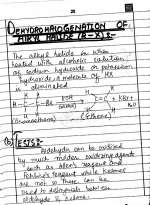 20
DEHYDROHALOGENATION OF
ALKYL HALIDE (R-X):-
The alkyl halide is when
heated with alcoholic solution
of sodium hydroxide or potassium
hydroxide a molecule of HX
is eliminated
H H
H-C-C-Br KOH C=C + KBr +
H H H2O
(Bromoethane) (Ethene)
(b) TESTS:-
Aldehyde can be oxidized
by much milder oxidizing agents
such as Tollen's reagent and
Fehling's reagent while ketones
are not so these can be
used to distinguish between
aldehyde & ketone.